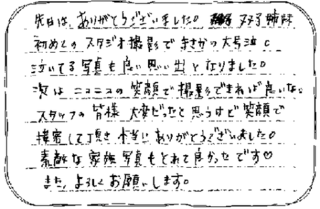 先日は、ありがとうございました。
初めてのスタジオ撮影でまさかの大号泣。
泣いてる写真も良い思い出となりました。
次はニコニコの笑顔で撮影できれば良いな。
スタッフの皆様 大変だったと思うけど笑顔で
接客して頂き本当にありがとうございました。
素敵な家族写真もとれて良かったです♡
また、よろしくお願いします。